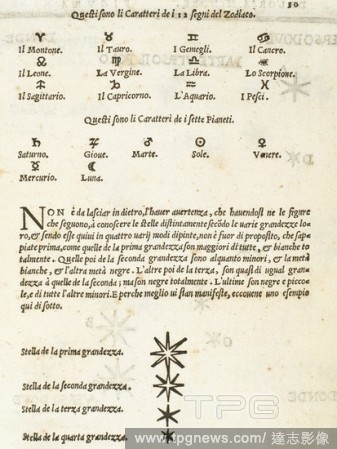 Questi sono li Caratteri de i 12 segni del Zodiaco.
10
Il Montone. Il Tauro. I Gemegli. Il Cancro.
Il Leone. La Vergine. La Libra. Lo Scorpione.
Il Sagittario. Il Capricorno. L'Aquario. I Pesci.
Questi sono li Caratteri de i sette Pianeti.
Saturno. Gioue. Marte. Sole. Venere.
Mercurio. Luna.
NON è da lasciar in dietro, l'hauer auertenza, che hauendosi ne le figure
che seguono, à conoscere le stelle distintamente secōdo le uarie grandezze lo-
ro, & sendo esse quiui in quattro uarij modi dipinte, non è fuor di proposito, che sap-
piate prima, come quelle de la prima grandezza son maggiori di tutte, & bianche to
talmente. Quelle poi de la seconda grandezza sono alquanto minori, & la metà
bianche, & l'altra metà negre. L'altre poi de la terza, son quasi di ugual gran-
dezza à quelle de la seconda; ma son negre totalmente. L'ultime son negre e picco-
le, e di tutte l'altre minori. E perche meglio ui sian manifeste, eccouene uno esempio
qui di sotto.
Stella de la prima grandezza.
Stella de la seconda grandezza.
Stella de la terza grandezza.
Stella de la quarta grandezza.
TPG
www.tpgnews.com/達志影像